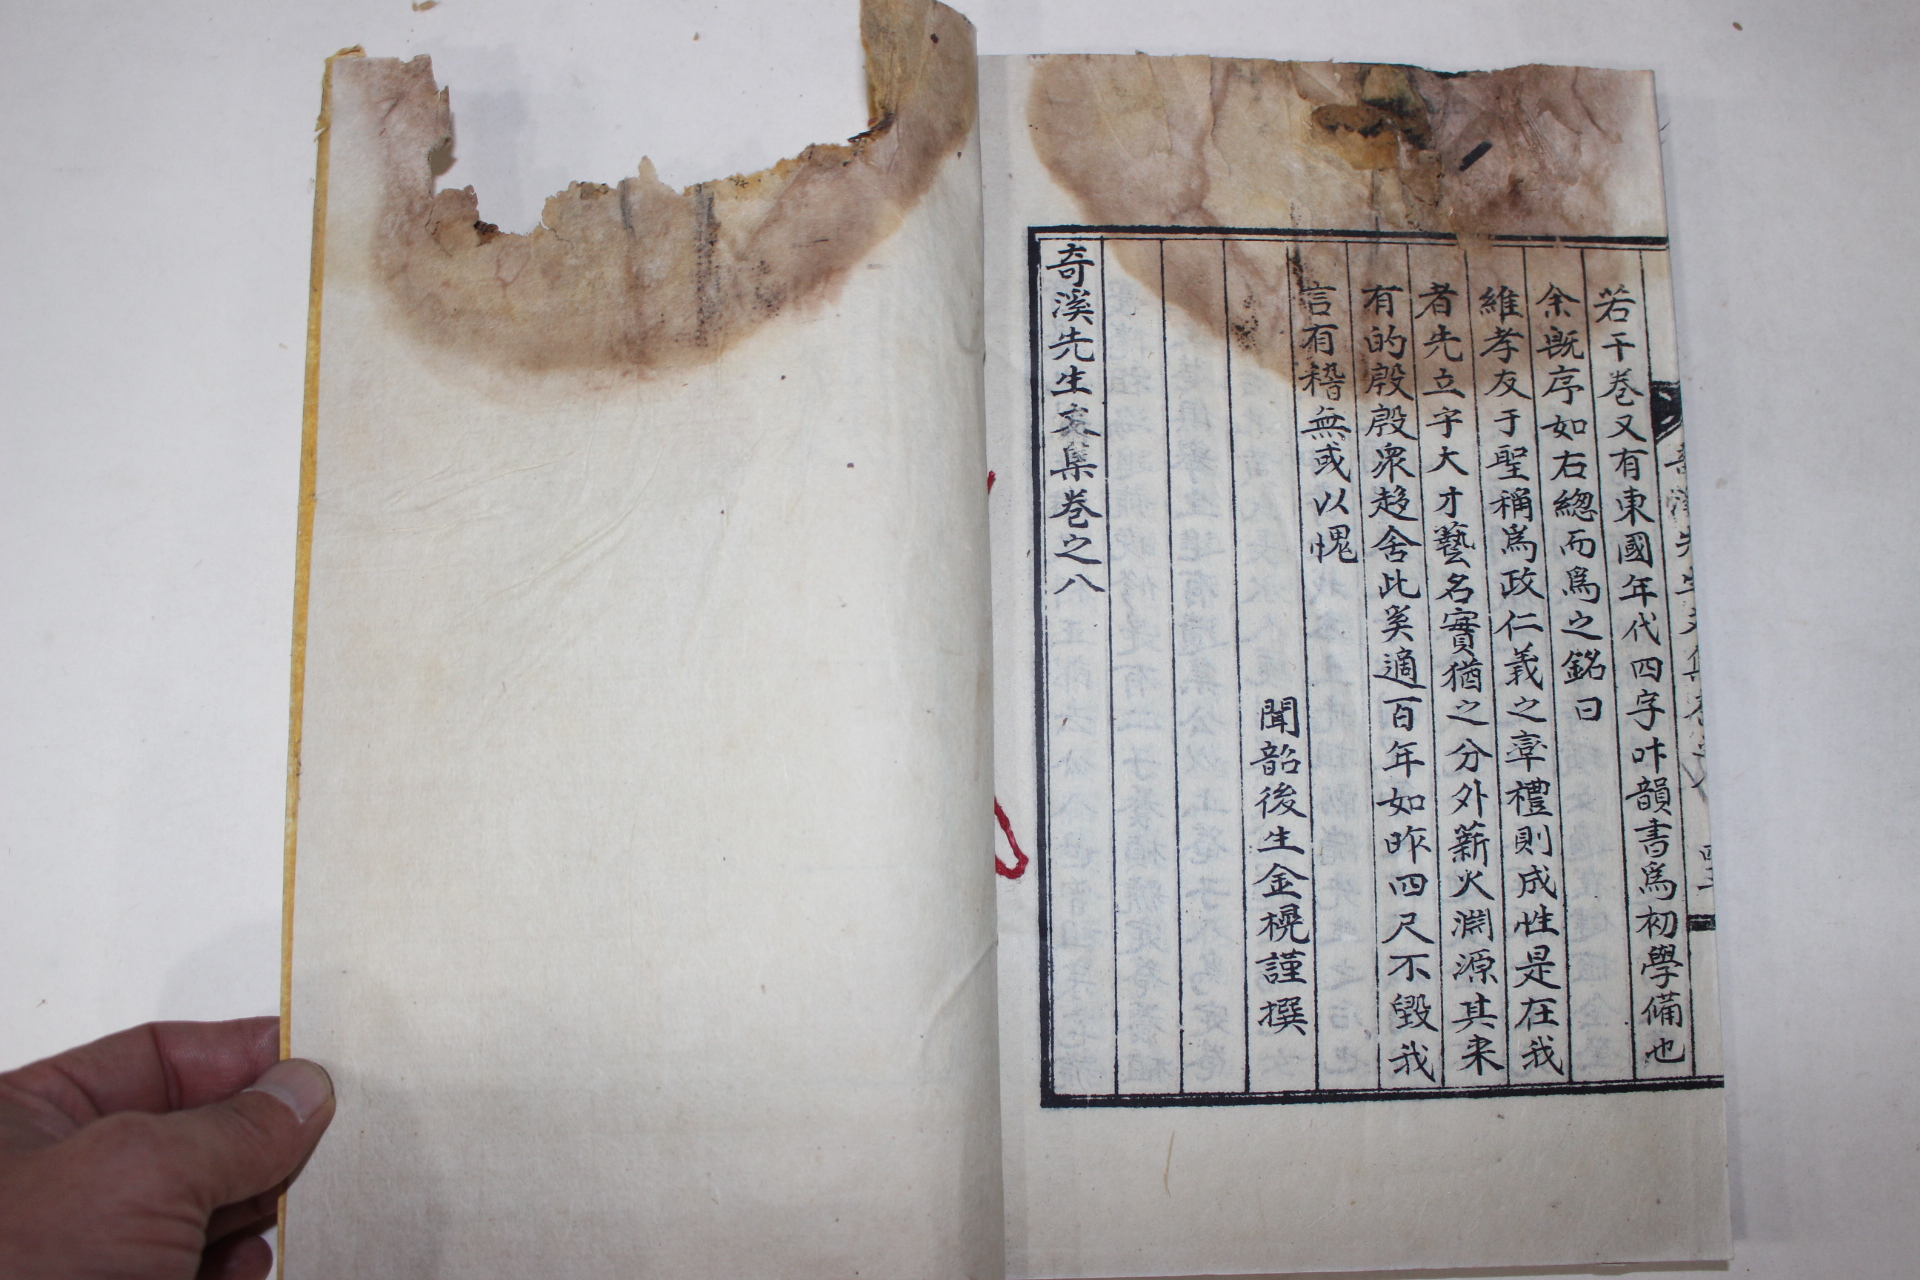 奇溪先生文集卷之
若干卷又有東國年代四字昨韻書爲初學備也
余旣序如右總而爲之銘曰
維孝友于聖稱爲政仁義之牽禮則成性是在我
者先立乎大才藝名實猶之分外薪火淵源其来
有的殷殷衆趍舍此奚適百年如昨四尺不毀我
言有稽無或以愧
聞韶後生金榥謹撰
奇溪先生文集卷之八